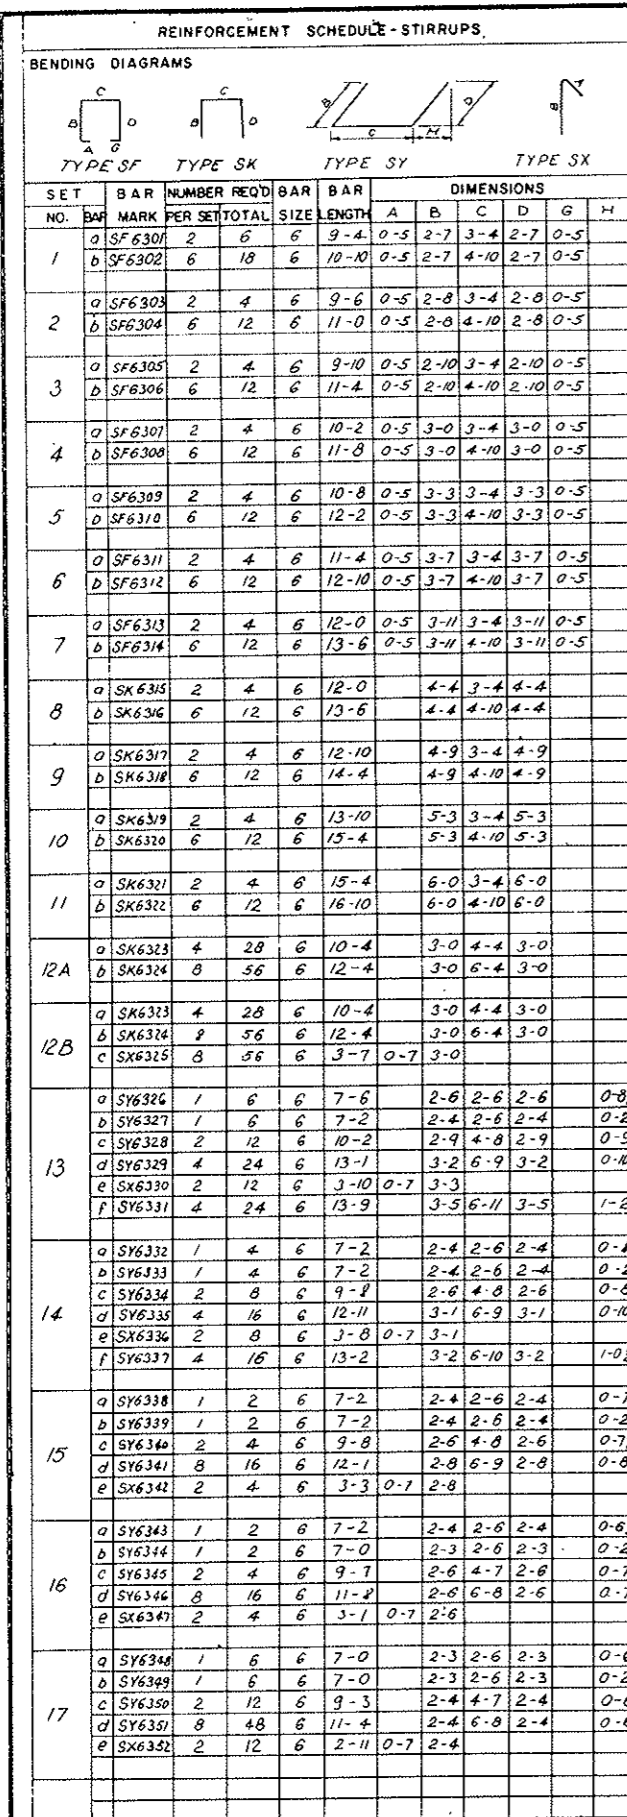 REINFORCEMENT SCHEDULE - STIRRUPS
BENDING DIAGRAMS
C C B D
B D B D B
A G C H
TYPE SF TYPE SK TYPE SY TYPE SX
SET BAR NUMBER REQ'D BAR BAR DIMENSIONS
NO. BAR MARK PER SET TOTAL SIZE LENGTH A B C D G H
1
a SF6301 2 6 6 9-4 0-5 2-7 3-4 2-7 0-5
b SF6302 6 18 6 10-10 0-5 2-7 4-10 2-7 0-5
2
a SF6303 2 4 6 9-6 0-5 2-8 3-4 2-8 0-5
b SF6304 6 12 6 11-0 0-5 2-8 4-10 2-8 0-5
3
a SF6305 2 4 6 9-10 0-5 2-10 3-4 2-10 0-5
b SF6306 6 12 6 11-4 0-5 2-10 4-10 2-10 0-5
4
a SF6307 2 4 6 10-2 0-5 3-0 3-4 3-0 0-5
b SF6308 6 12 6 11-8 0-5 3-0 4-10 3-0 0-5
5
a SF6309 2 4 6 10-8 0-5 3-3 3-4 3-3 0-5
b SF6310 6 12 6 12-2 0-5 3-3 4-10 3-3 0-5
6
a SF6311 2 4 6 11-4 0-5 3-7 3-4 3-7 0-5
b SF6312 6 12 6 12-10 0-5 3-7 4-10 3-7 0-5
7
a SF6313 2 4 6 12-0 0-5 3-11 3-4 3-11 0-5
b SF6314 6 12 6 13-6 0-5 3-11 4-10 3-11 0-5
8
a SK6315 2 4 6 12-0 4-4 3-4 4-4
b SK6316 6 12 6 13-6 4-4 4-10 4-4
9
a SK6317 2 4 6 12-10 4-9 3-4 4-9
b SK6318 6 12 6 14-4 4-9 4-10 4-9
10
a SK6319 2 4 6 13-10 5-3 3-4 5-3
b SK6320 6 12 6 15-4 5-3 4-10 5-3
11
a SK6321 2 4 6 15-4 6-0 3-4 6-0
b SK6322 6 12 6 16-10 6-0 4-10 6-0
12A
a SK6323 4 28 6 10-4 3-0 4-4 3-0
b SK6324 8 56 6 12-4 3-0 6-4 3-0
12B
a SK6323 4 28 6 10-4 3-0 4-4 3-0
b SK6324 8 56 6 12-4 3-0 6-4 3-0
c SX6325 8 56 6 3-7 0-7 3-0
13
a SY6326 1 6 6 7-6 2-6 2-6 2-6 0-8
b SY6327 1 6 6 7-2 2-4 2-6 2-4 0-2
c SY6328 2 12 6 10-2 2-9 4-8 2-9 0-9
d SY6329 4 24 6 13-1 3-2 6-9 3-2 0-10
e SX6330 2 12 6 3-10 0-7 3-3
f SY6331 4 24 6 13-9 3-5 6-11 3-5 1-2
14
a SY6332 1 4 6 7-2 2-4 2-6 2-4
b SY6333 1 4 6 7-2 2-4 2-6 2-4 0-2
c SY6334 2 8 6 9-8 2-6 4-8 2-6 0-8
d SY6335 4 16 6 12-11 3-1 6-9 3-1 0-10
e SX6336 2 8 6 3-8 0-7 3-1
f SY6337 4 16 6 13-2 3-2 6-10 3-2 1-0
15
a SY6338 1 2 6 7-2 2-4 2-6 2-4 0-7
b SY6339 1 2 6 7-2 2-4 2-6 2-4 0-2
c SY6340 2 4 6 9-8 2-6 4-8 2-6 0-7
d SY6341 8 16 6 12-1 2-8 6-9 2-8 0-8
e SX6342 2 4 6 3-3 0-7 2-8
16
a SY6343 1 2 6 7-2 2-4 2-6 2-4 0-6
b SY6344 1 2 6 7-0 2-3 2-6 2-3 0-2
c SY6345 2 4 6 9-7 2-6 4-7 2-6 0-7
d SY6346 8 16 6 11-8 2-6 6-8 2-6 0-7
e SX6347 2 4 6 3-1 0-7 2-6
17
a SY6348 1 6 6 7-0 2-3 2-6 2-3 0-6
b SY6349 1 6 6 7-0 2-3 2-6 2-3 0-2
c SY6350 2 12 6 9-3 2-4 4-7 2-4 0-6
d SY6351 8 48 6 11-4 2-4 6-8 2-4 0-6
e SX6352 2 12 6 2-11 0-7 2-4